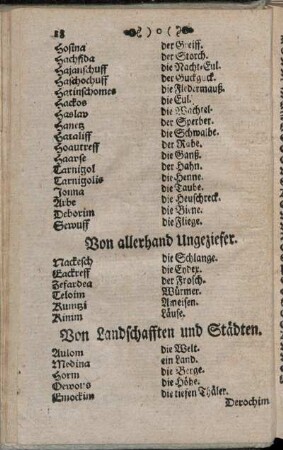 18 ) o (
Hosina der Greiff.
Hachsida der Storch.
Hajanschuff die Nacht-Eul.
Haschochuff der Guckguck.
Hatinschomes die Fledermauß.
Hackos die Eul.
Haslav die Wachtel.
Hanetz der Sperber.
Hataliff die Schwalbe.
Hoautreff der Rabe.
Haarse die Ganß.
Tarnigol der Hahn.
Tarnigolis die Henne.
Jonna die Taube.
Arbe die Heuschreck.
Deborim die Biene.
Sewuff die Fliege.
Von allerhand Ungeziefer.
Nackesch die Schlange.
Eackreff die Eydex.
Zefardea der Frosch.
Teloim Würmer.
Ameisen.
Kinim Läuse.
Von Landschafften und Städten.
Aulom die Welt.
Medina ein Land.
Horm die Berge.
die Höhe.
Emockim die tiefen Thäler.
Derochim